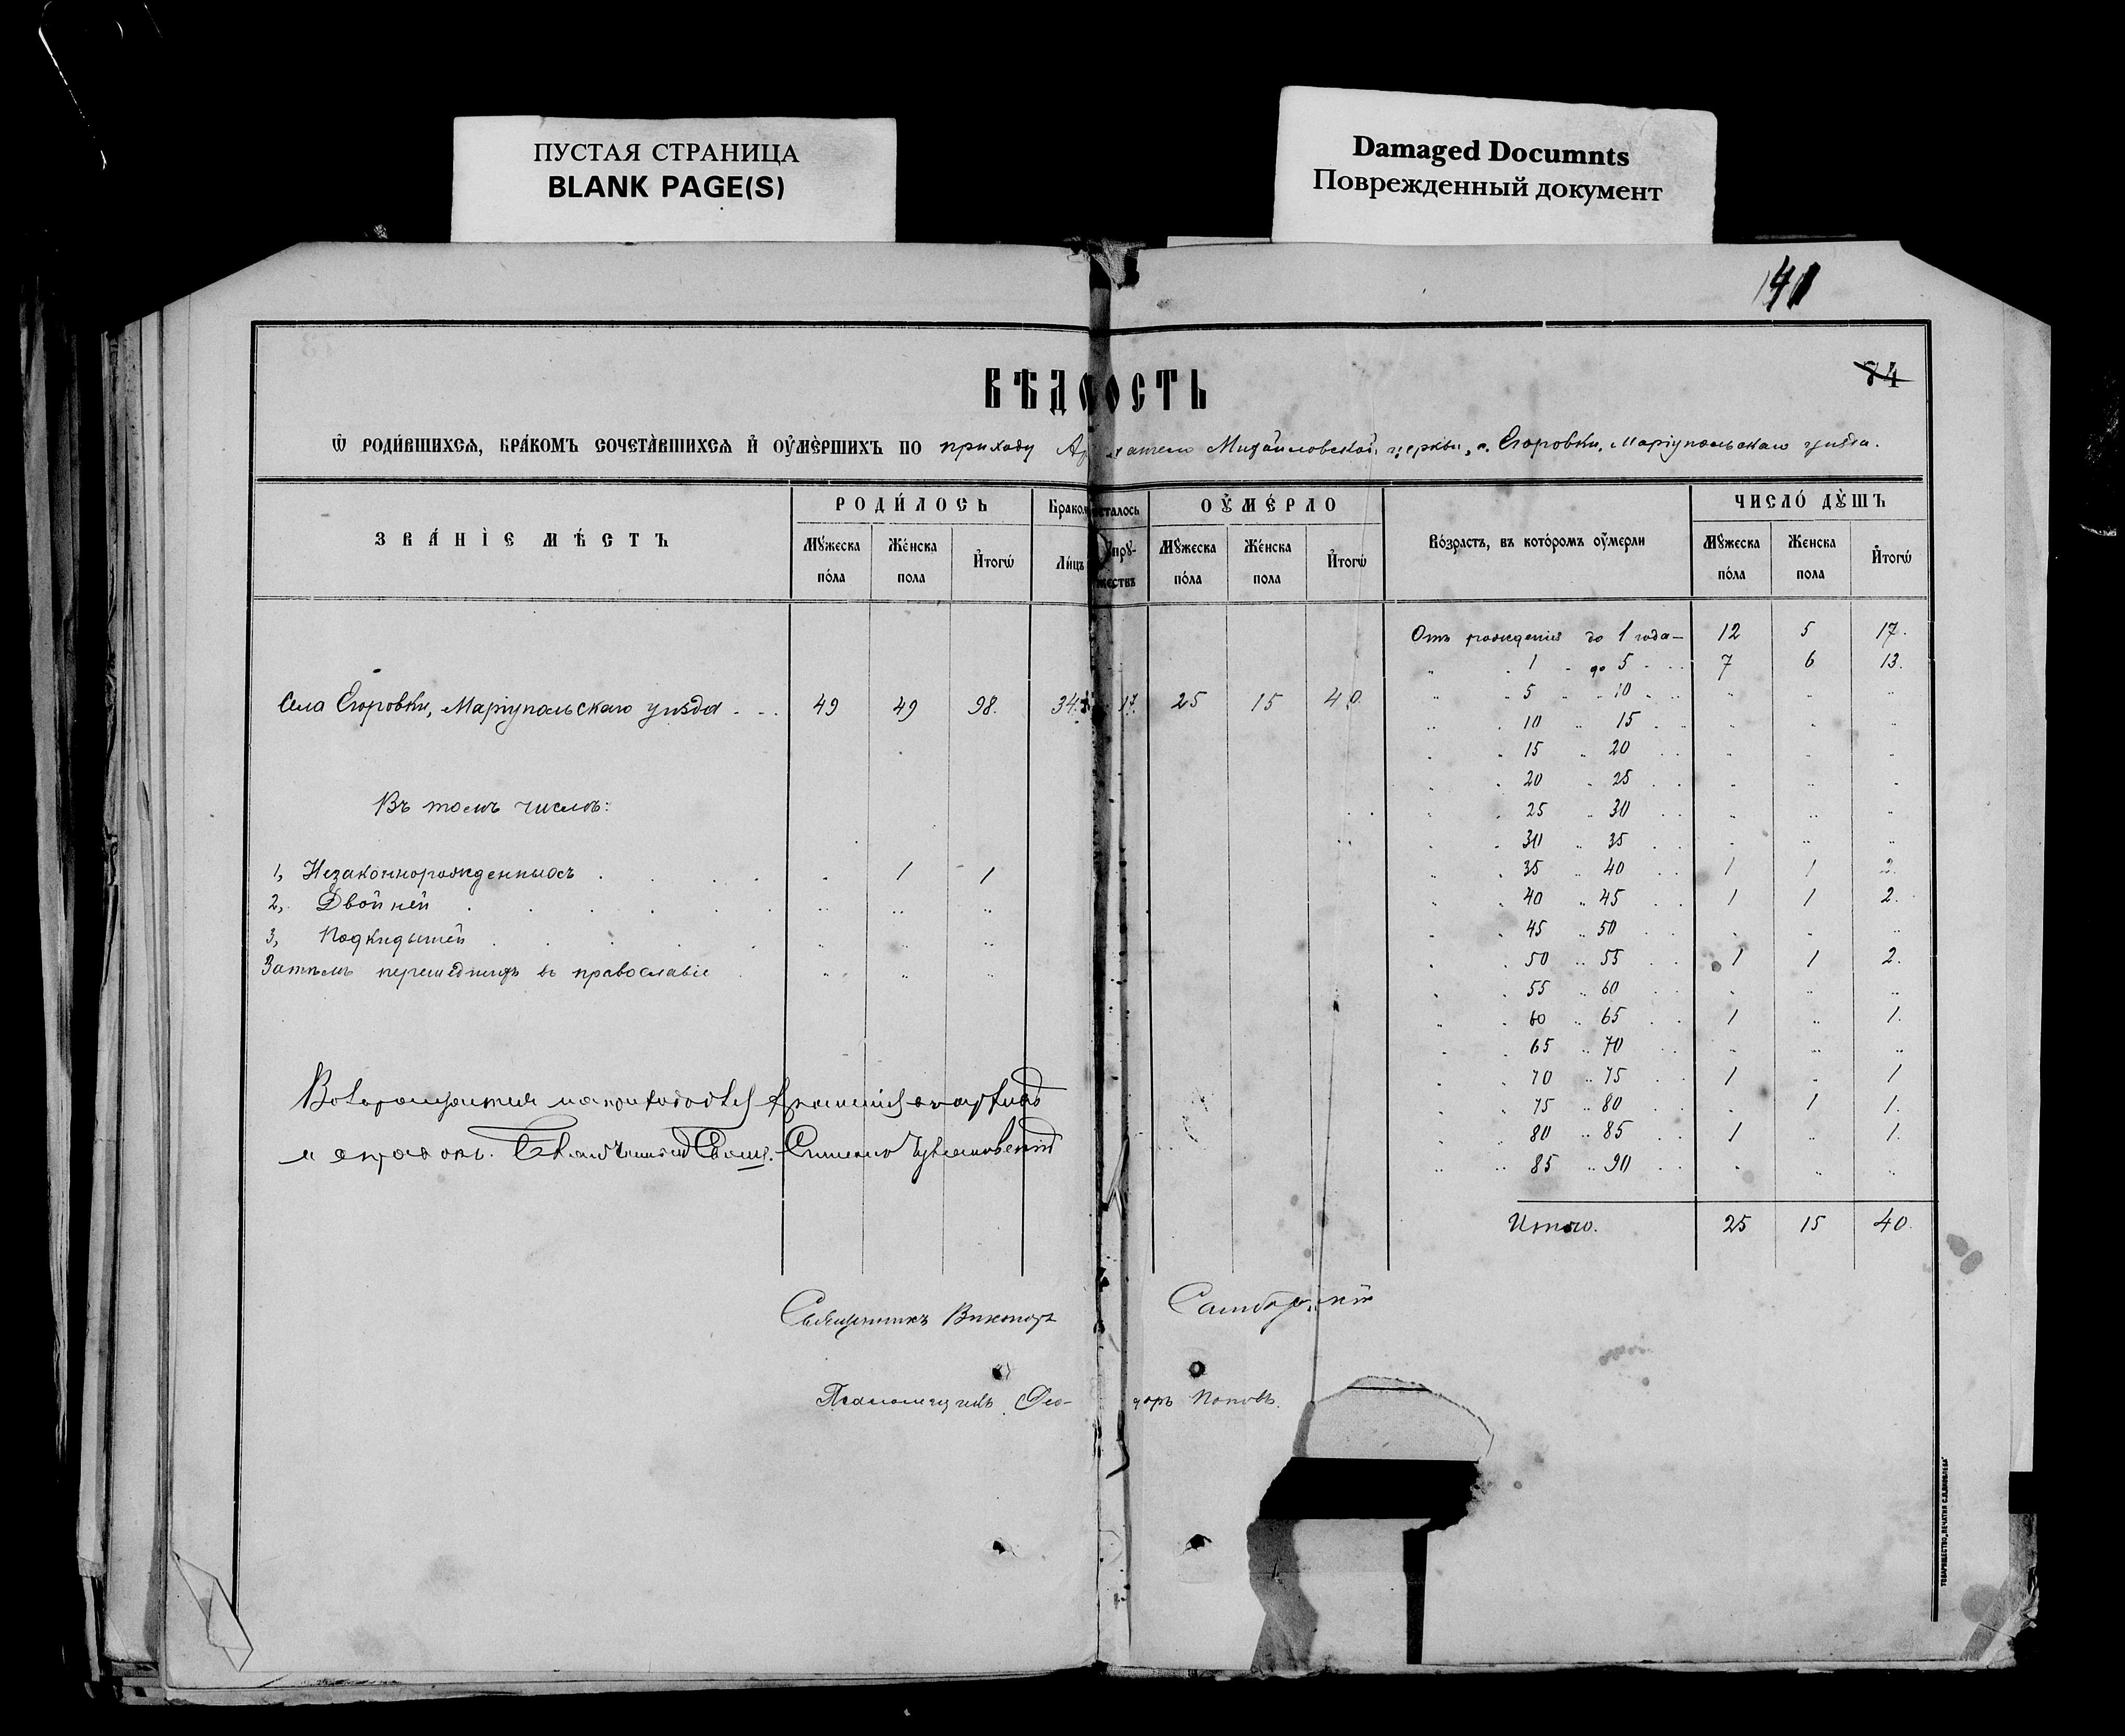 ПУСТАЯ СТРАНИЦА
BLANK PAGE(S)
Damaged Documnts
Поврежденный документ
141
74
ВѢДОМОСТЬ
Ѡ РОДИ́ВШИХСЯ, БРА́КОМЪ СОЧЕТА́ВШИХСЯ И҆ ОУ҆МЕ́РШИХЪ ПО приходу Архангело Михайловской церкви, с. Егоровки, Маріупольскаго уѣзда.
ЗВА́НІЕ МѢСТЪ
РОДИ́ЛОСЬ
Мꙋ́жеска по́ла
Же́нска пола
И҆тогѡ̀
Браком сталось
Ли́цъ
пру-
жествъ
ОУ҆МЕ́РЛО
Мꙋ́жеска по́ла
Же́нска пола
И҆тогѡ̀
Во́зрастъ, въ кото́ромъ оу҆мерли
ЧИСЛО́ ДꙊШЪ
Мꙋ́жеска по́ла
Женска пола
И҆тогѡ̀
Отъ рожденія до 1 года — 12 5 17.
" . 1 . до 5 . . . 7 6 13.
Села Егоровки, Маріупольскаго уѣзда . . . 49 49 98. 34. 17. 25 15 40.
" " 5 " 10 . . " " "
" . 10 " 15 . . " " "
" . 15 " 20 . . " " "
" . 20 " 25 . . " " "
Въ томъ числѣ:
" . 25 " 30 . . " " "
" . 30 " 35 . . " " "
1, Незаконнорожденныхъ . . . . . 1 1
" . 35 " 40 . . 1 1 2.
2, Двойней . . . . . . " " "
" . 40 " 45 . . 1 1 2.
3, Подкидышей . . . . . " " "
" . 45 " 50 . . " " "
Затѣмъ перешедшихъ въ православіе . " " "
" . 50 " 55 . . 1 1 2.
" . 55 " 60 . . " " "
" . 60 " 65 . . 1 " 1.
" . 65 " 70 . . " " "
" . 70 " 75 . . 1 " 1
" . 75 " 80 . . " 1 1.
" . 80 " 85 . . 1 " 1.
" " 85 " 90 . . " " "
Итого. 25 15 40.
Священникъ Викторъ Самборскій
Псаломщикъ Ѳео- доръ Поповъ.